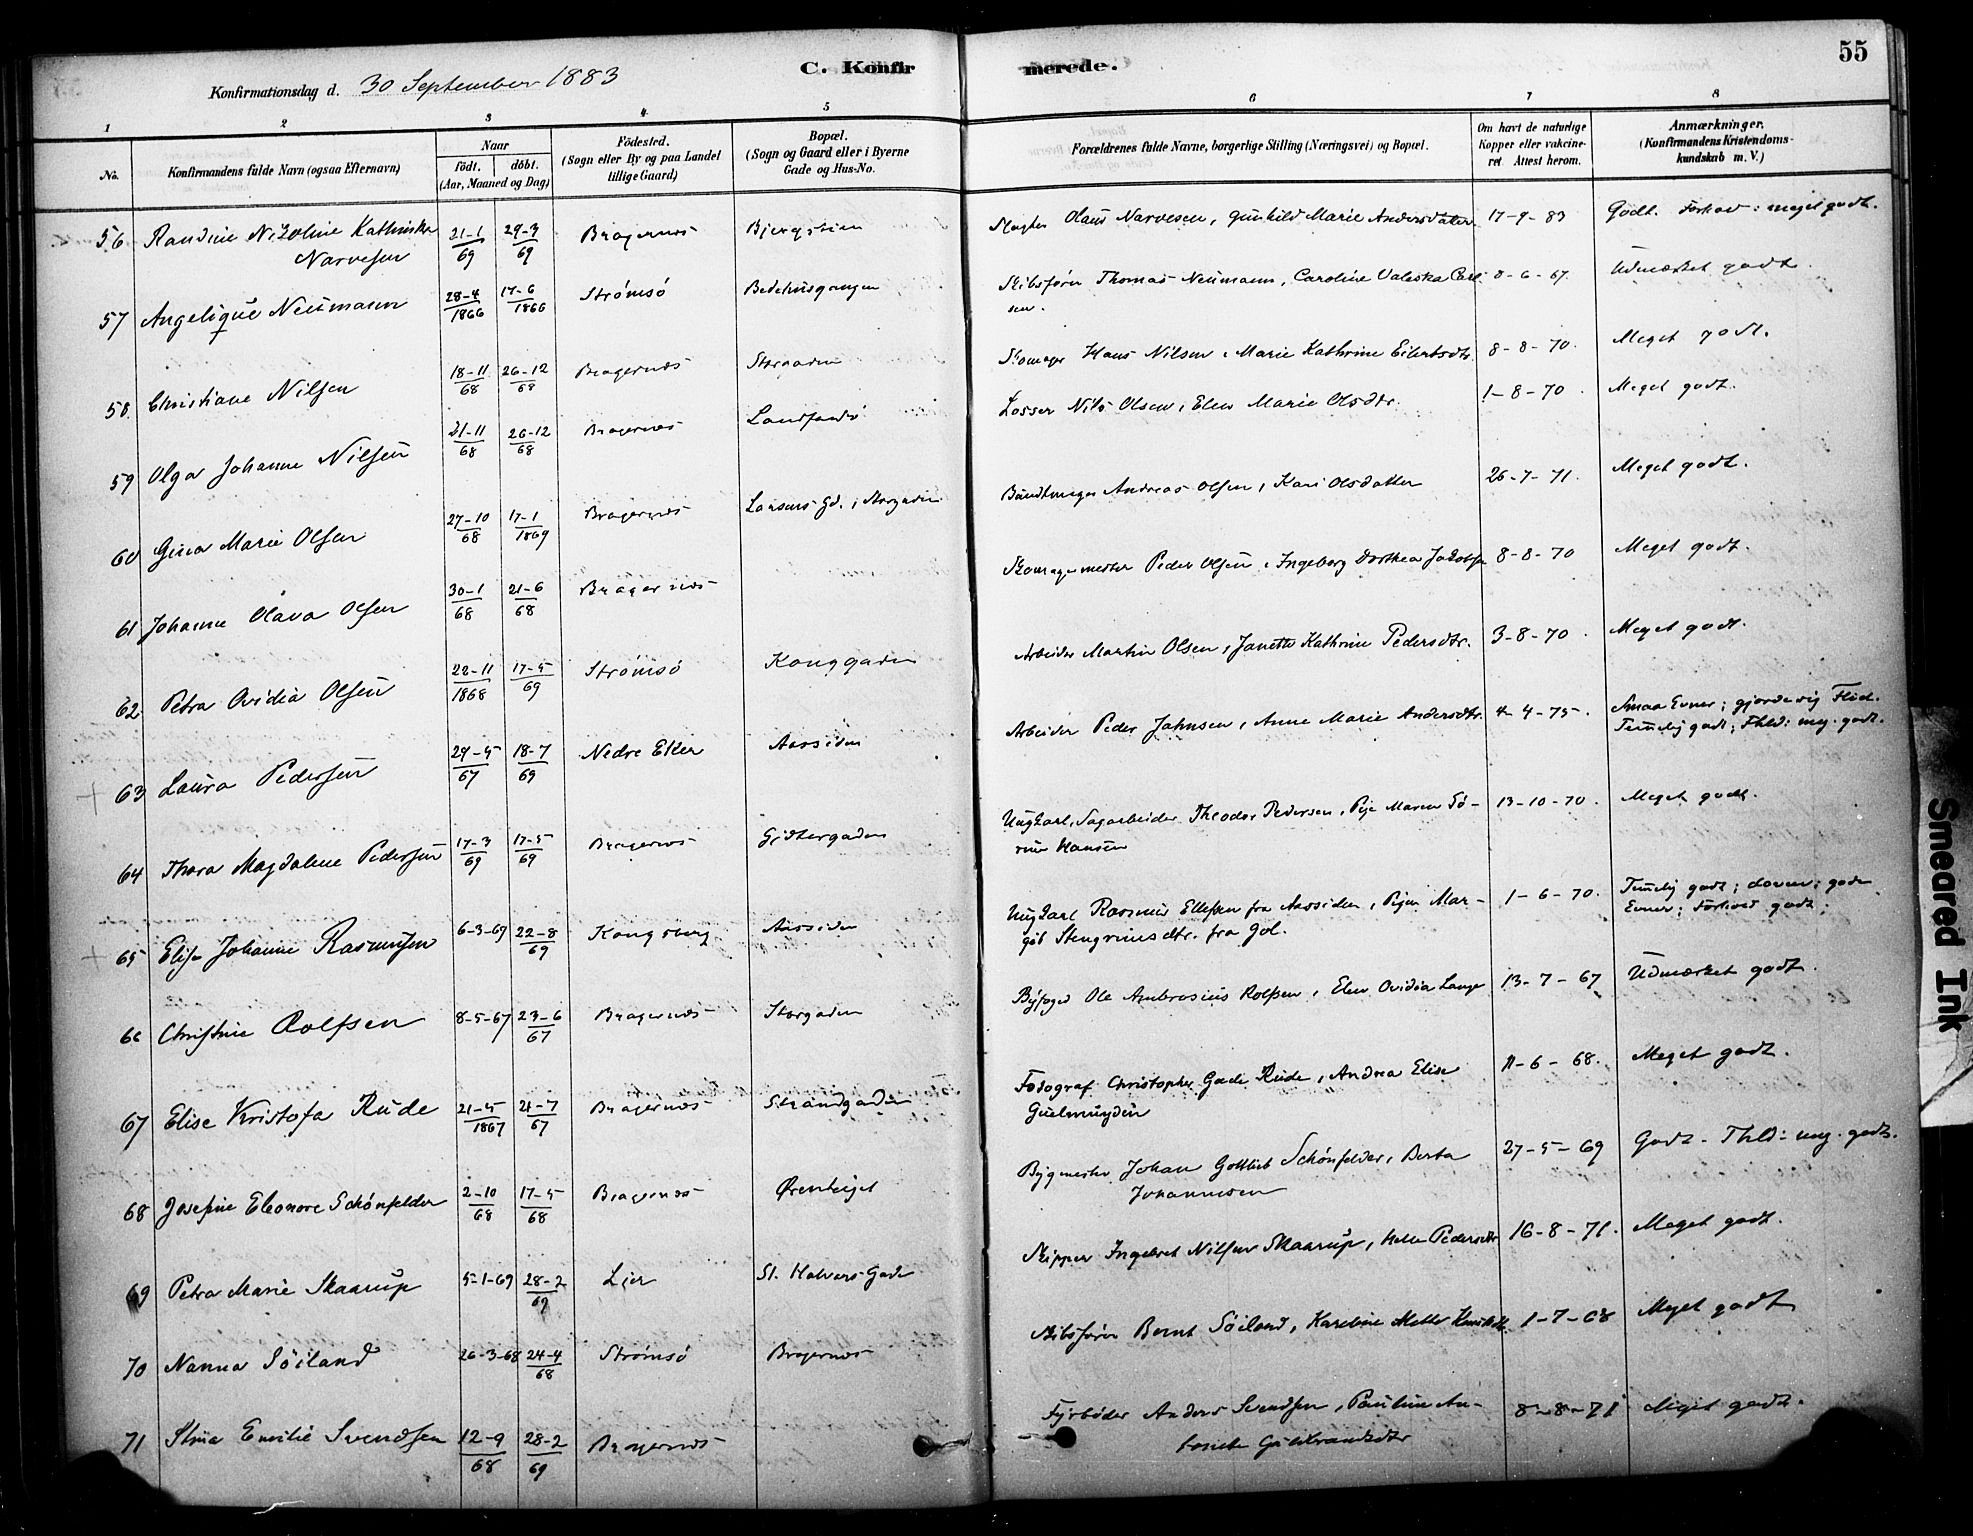 55
C. Konfirmerede.
Konfirmationsdag d. 30 September 1883
1 2 3 4 5 6 7 8
No. Konfirmandens fulde Navn (ogsaa Efternavn) Naar födt. döbt. (Aar, Maaned og Dag) Födested. (Sogn eller By og paa Landet tillige Gaard) Bopæl. (Sogn og Gaard eller i Byerne Gade og Hus-No. Forældrenes fulde Navne, borgerlige Stilling (Næringsvei) og Bopæl. Om havt de naturlige Kopper eller vakcineret Attest herom. Anmærkninger. (Konfirmandens Kristendomskundskab m. V.)
56 Randine Nikoline Kathinka Narvesen 21-1/69 29-3/69 Bragernes Bjergstien Olaus Narvesen, Gunhild Marie Andersdatter 17-9-83 Godt. Forhold: meget godt.
57 Angelique Neumann 28-4/1866 17-6/1866 Strømsø Bedehusgangen Skibsfører Thomas Neumann, Caroline Valeska Carlsen. 8-6-67. Udmærket godt.
58. Christiane Nilsen 18-11/68 26-12/68 Bragernes Storgaden Skomager Hans Nilsen, Marie Kathrine Eilertsdtr. 8-8-70. Meget godt.
59 Olga Johanne Nilsen 21-11/68 26-12/68 Bragernes Losser Nils Olsen, Elen Marie Olsdtr. 1-8-70. Meget godt.
60 Gina Marie Olsen 27-10/68 17-1/1869 Bragernes Larsens Gd. i Storgaden Bundtmager Andreas Olsen, Kari Olsdatter 26-7-71. Meget godt.
61 Johanne Olava Olsen 30-1/68 21-6/68 Bragernes Skomagermester Peder Olsen, Ingeborg Dorthea Jakobsen 8-8-70 Meget godt.
62 Petra Ovidia Olsen 22-11/1868 17-5/69 Strømsø Konggaden Arbeider Martin Olsen, Janette Kathrine Pedersdtr. 3-8-70. Meget godt.
63 Laura Pedersen 29-5/67 18-7/69 Nedre Eker Aassiden Arbeider Peder Johnsen, Anne Marie Andersdtr. 4-4-75. Smaa Evner; gjorde sig Flid. Temmelig godt; Fhld: meg. godt.
64 Thora Magdalene Pedersen 17-3/69 17-5/69 Bragernes Gjætergaden Ungkarl, Sagarbeider Theodor Pedersen, Pige Maren Sørine Hansen 13-10-70. Meget godt.
65 Elise Johanne Rasmussen 6-3-69 22-8/69 Kongsberg Aassiden Ungkarl Rasmus Ellefsen fra Aassiden, Pigen Margit Stengrimsdtr. fra Gol. 1-6-70. Temmelig godt; doven; gode Evner; Forhold godt.
66 Christine Rolfsen 8-5-67 23-6/67 Bragernes Storgaden Byfoged Ole Ambrosius Rolfsen, Elen Ovidia Lange 13-7-67 Udmærket godt.
67 Elise Kristofa Rude 21-5/1867 21-7/67 Bragernes Strandgaden Fotograf Christopher Gade Rude, Andrea Elise Guelmuyden 11-6-68. Meget godt.
68 Josefine Eleonore Schønfelder 2-10/68 17-5/68 Bragernes Ørenteiget Bygmester Johan Gottlieb Schønfelder, Berta Johannesen 27-5-69 Godt. Fhld: meg. godt.
69 Petra Marie Skaarup 5-1-69 28-2/69 Lier St. Halvars Gade Skipper Ingebret Nilsen Skaarup, Helle Pedersdtr 16-8-71. Meget godt.
70 Nanna Söiland 26-3-68 24-4/68 Strømsø Bragernes Skibsfører Bernt Söiland, Karoline Mette 1-7-68 Meget godt
71 Emilie Svendsen 12-9/68 28-2/69 Bragernes Fyrbøder Anders Svendsen, Pauline Antonette Gulbrandsdtr 8-8-71 Meget godt.
Smeared Ink